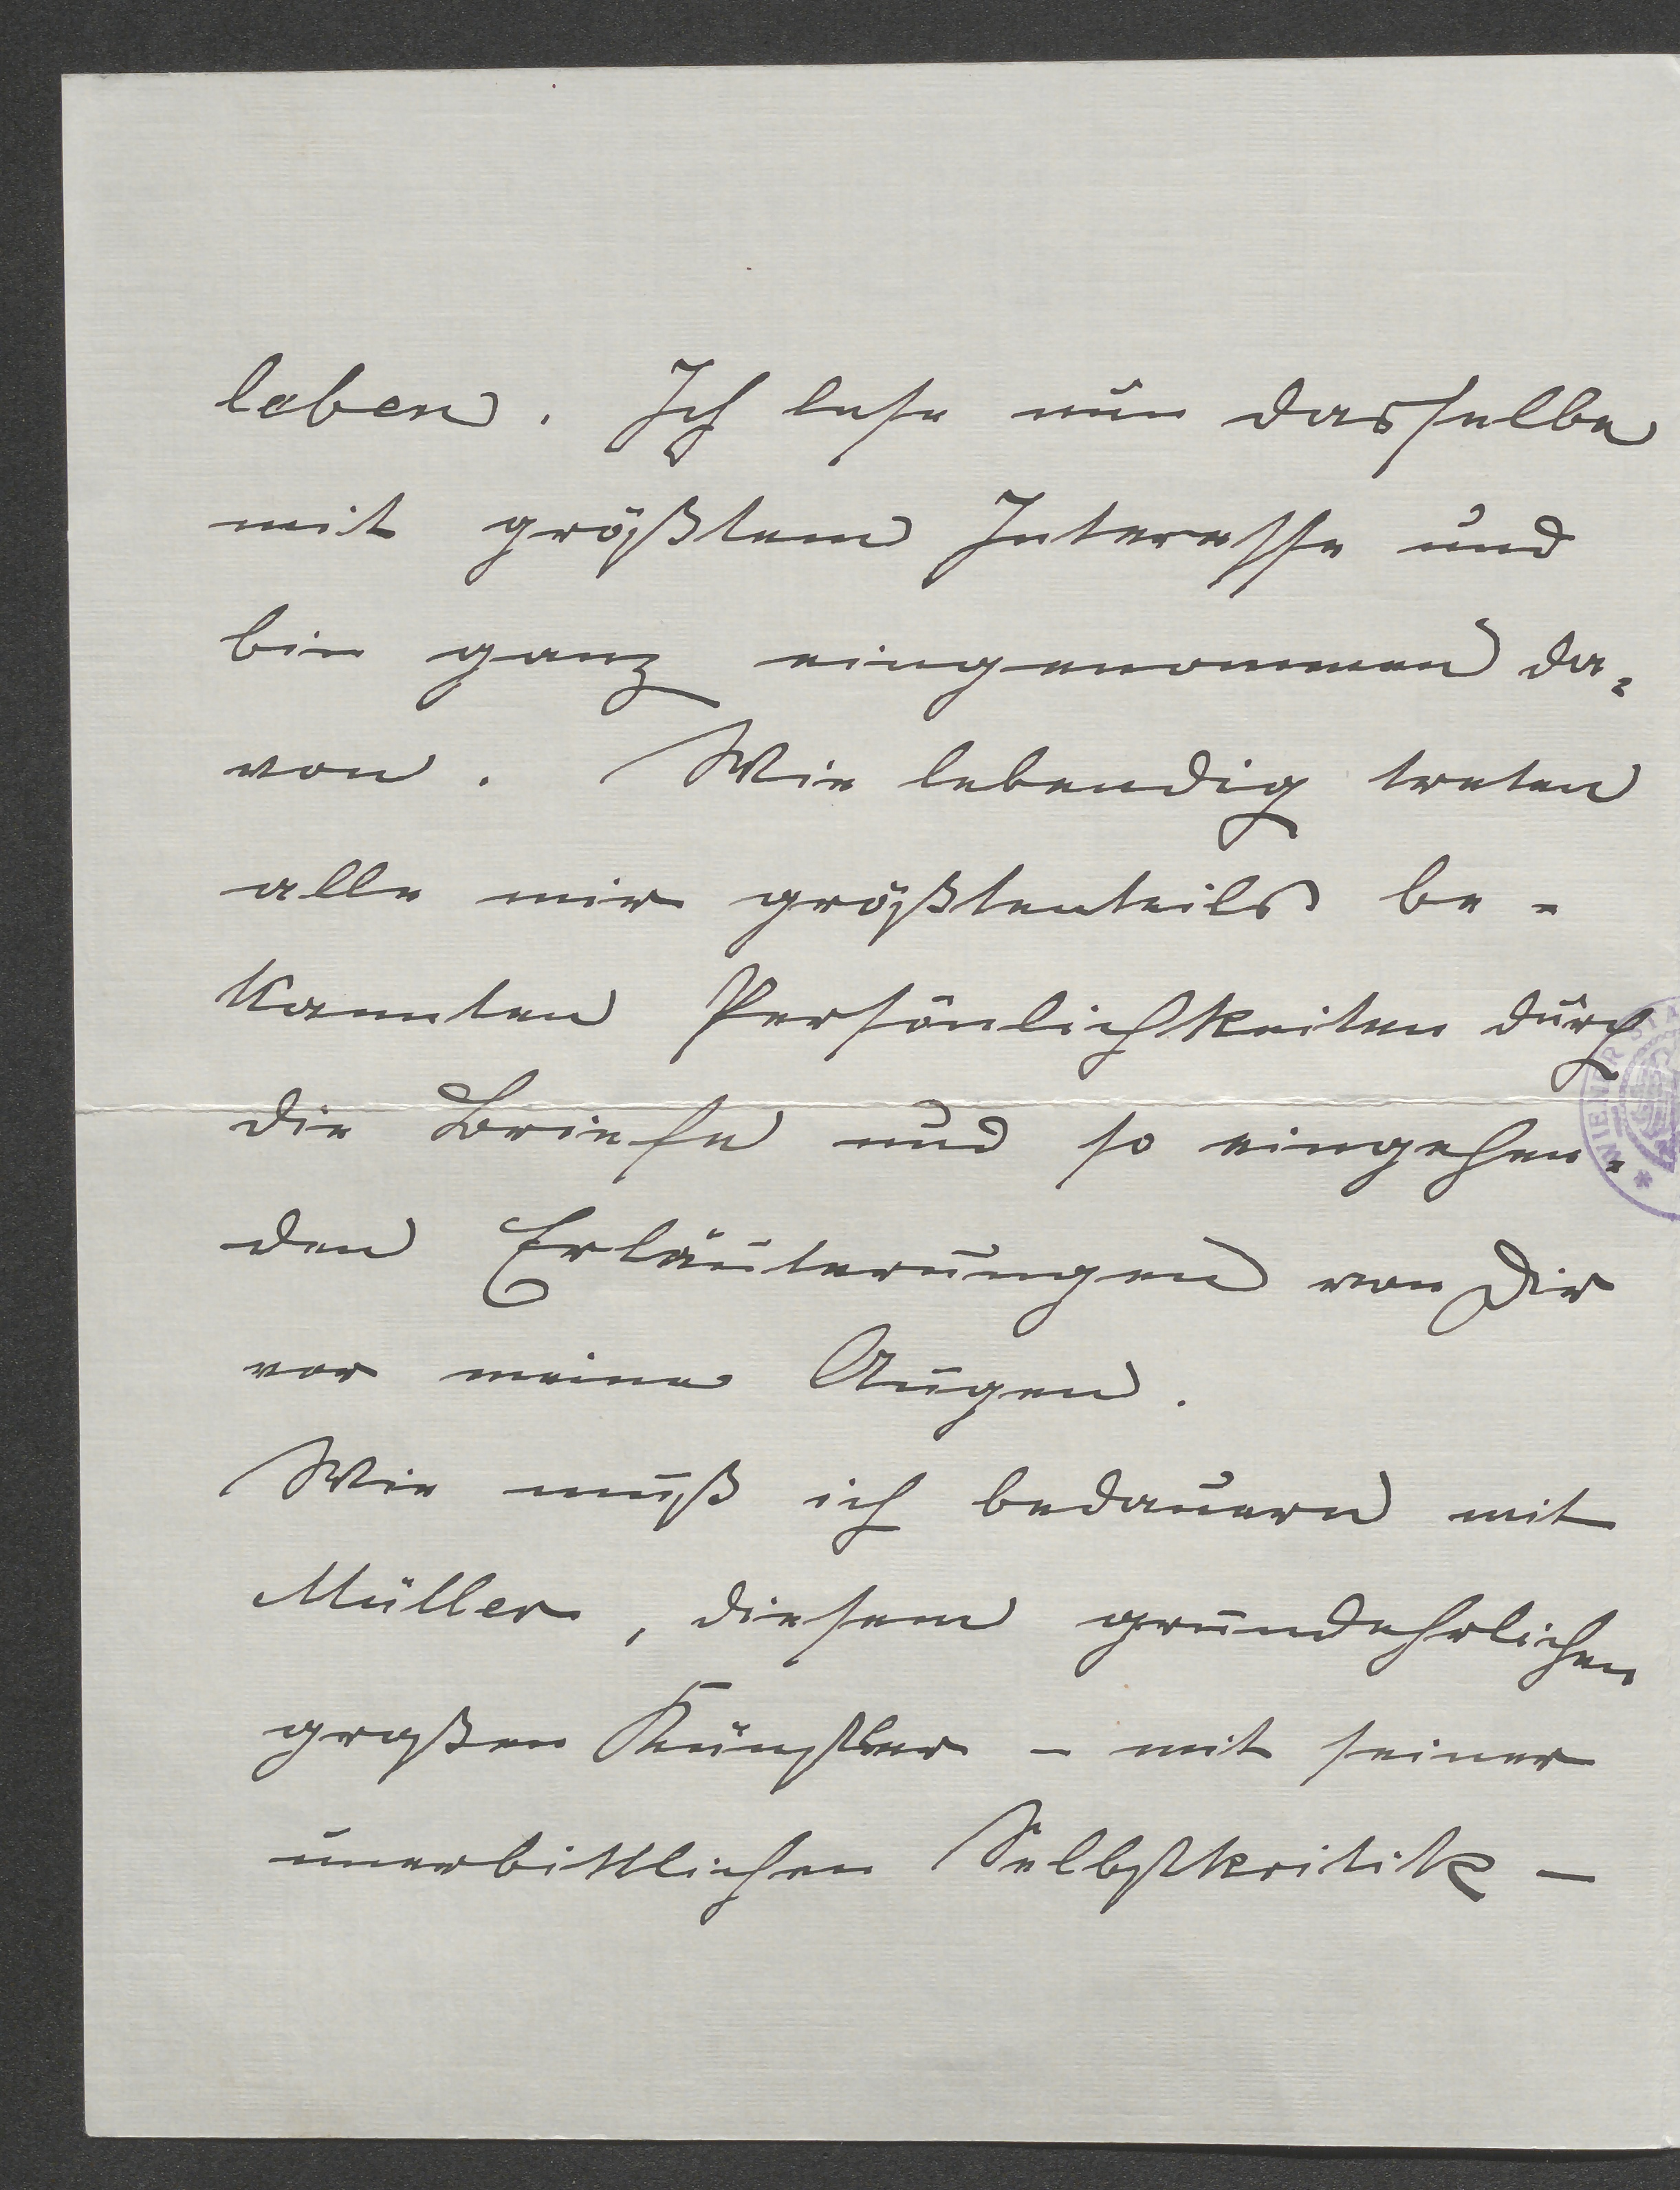 leben. Ich lese nun dasselbe
mit größtem Interesse und
bin ganz eingenommen da-
von. Wie lebendig treten
alle mir größtenteils be-
kannten Persönlichkeiten durch
die Briefe und so eingehen-
den Erläuterungen von Dir
vor meine Augen.
Wie muß ich bedauern mit
Müller, diesem grundehrlichen
großen Künstler – mit seiner
unerbittlichen Selbstkritik –
WIENER STA